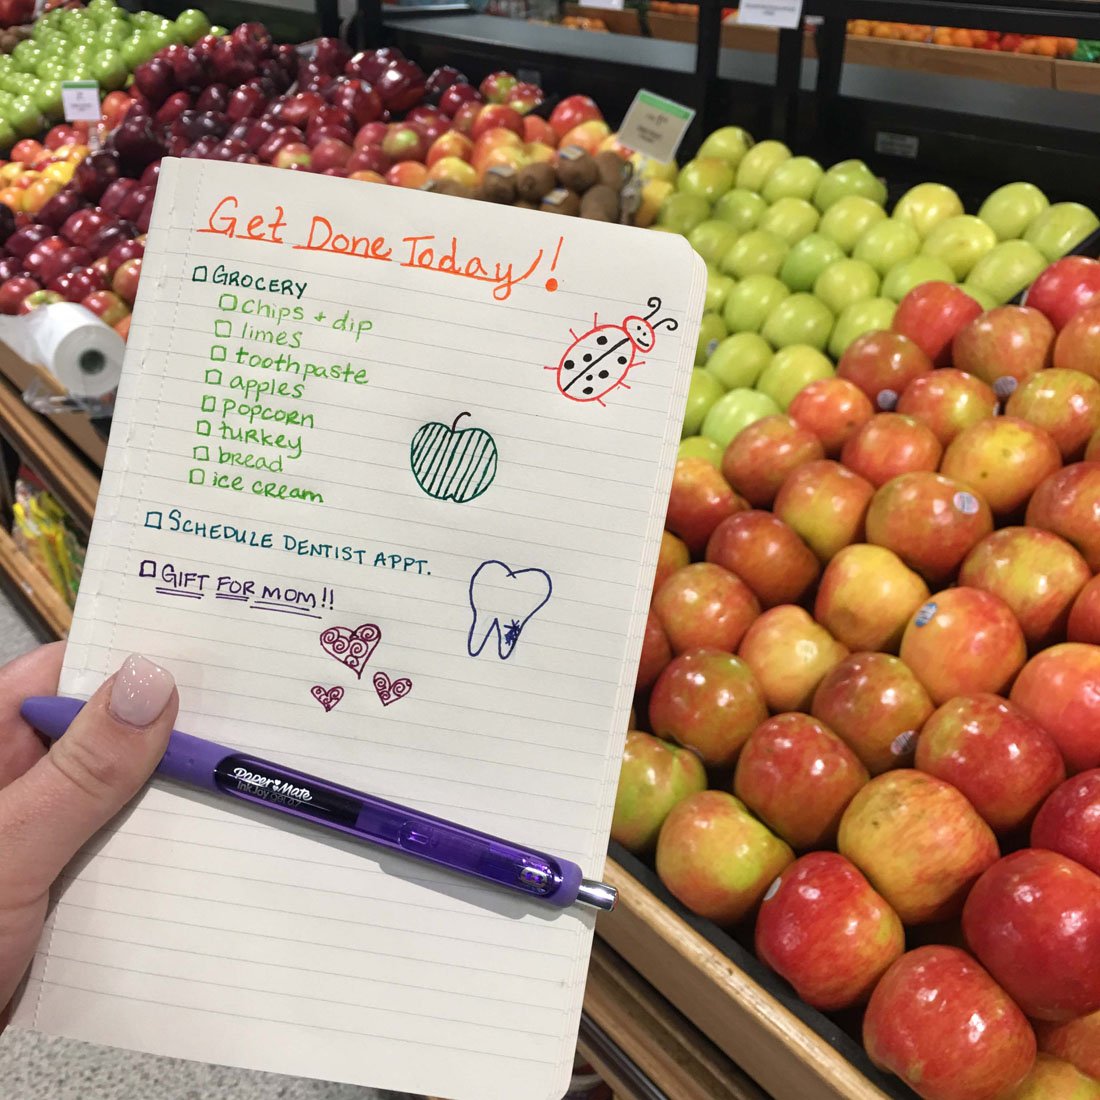 Get Done Today!
GROCERY
chips + dip
limes
toothpaste
apples
popcorn
turkey
bread
ice cream
SCHEDULE DENTIST APPT.
GIFT FOR MOM!!
Paper Mate
InkJoy gel 0.7